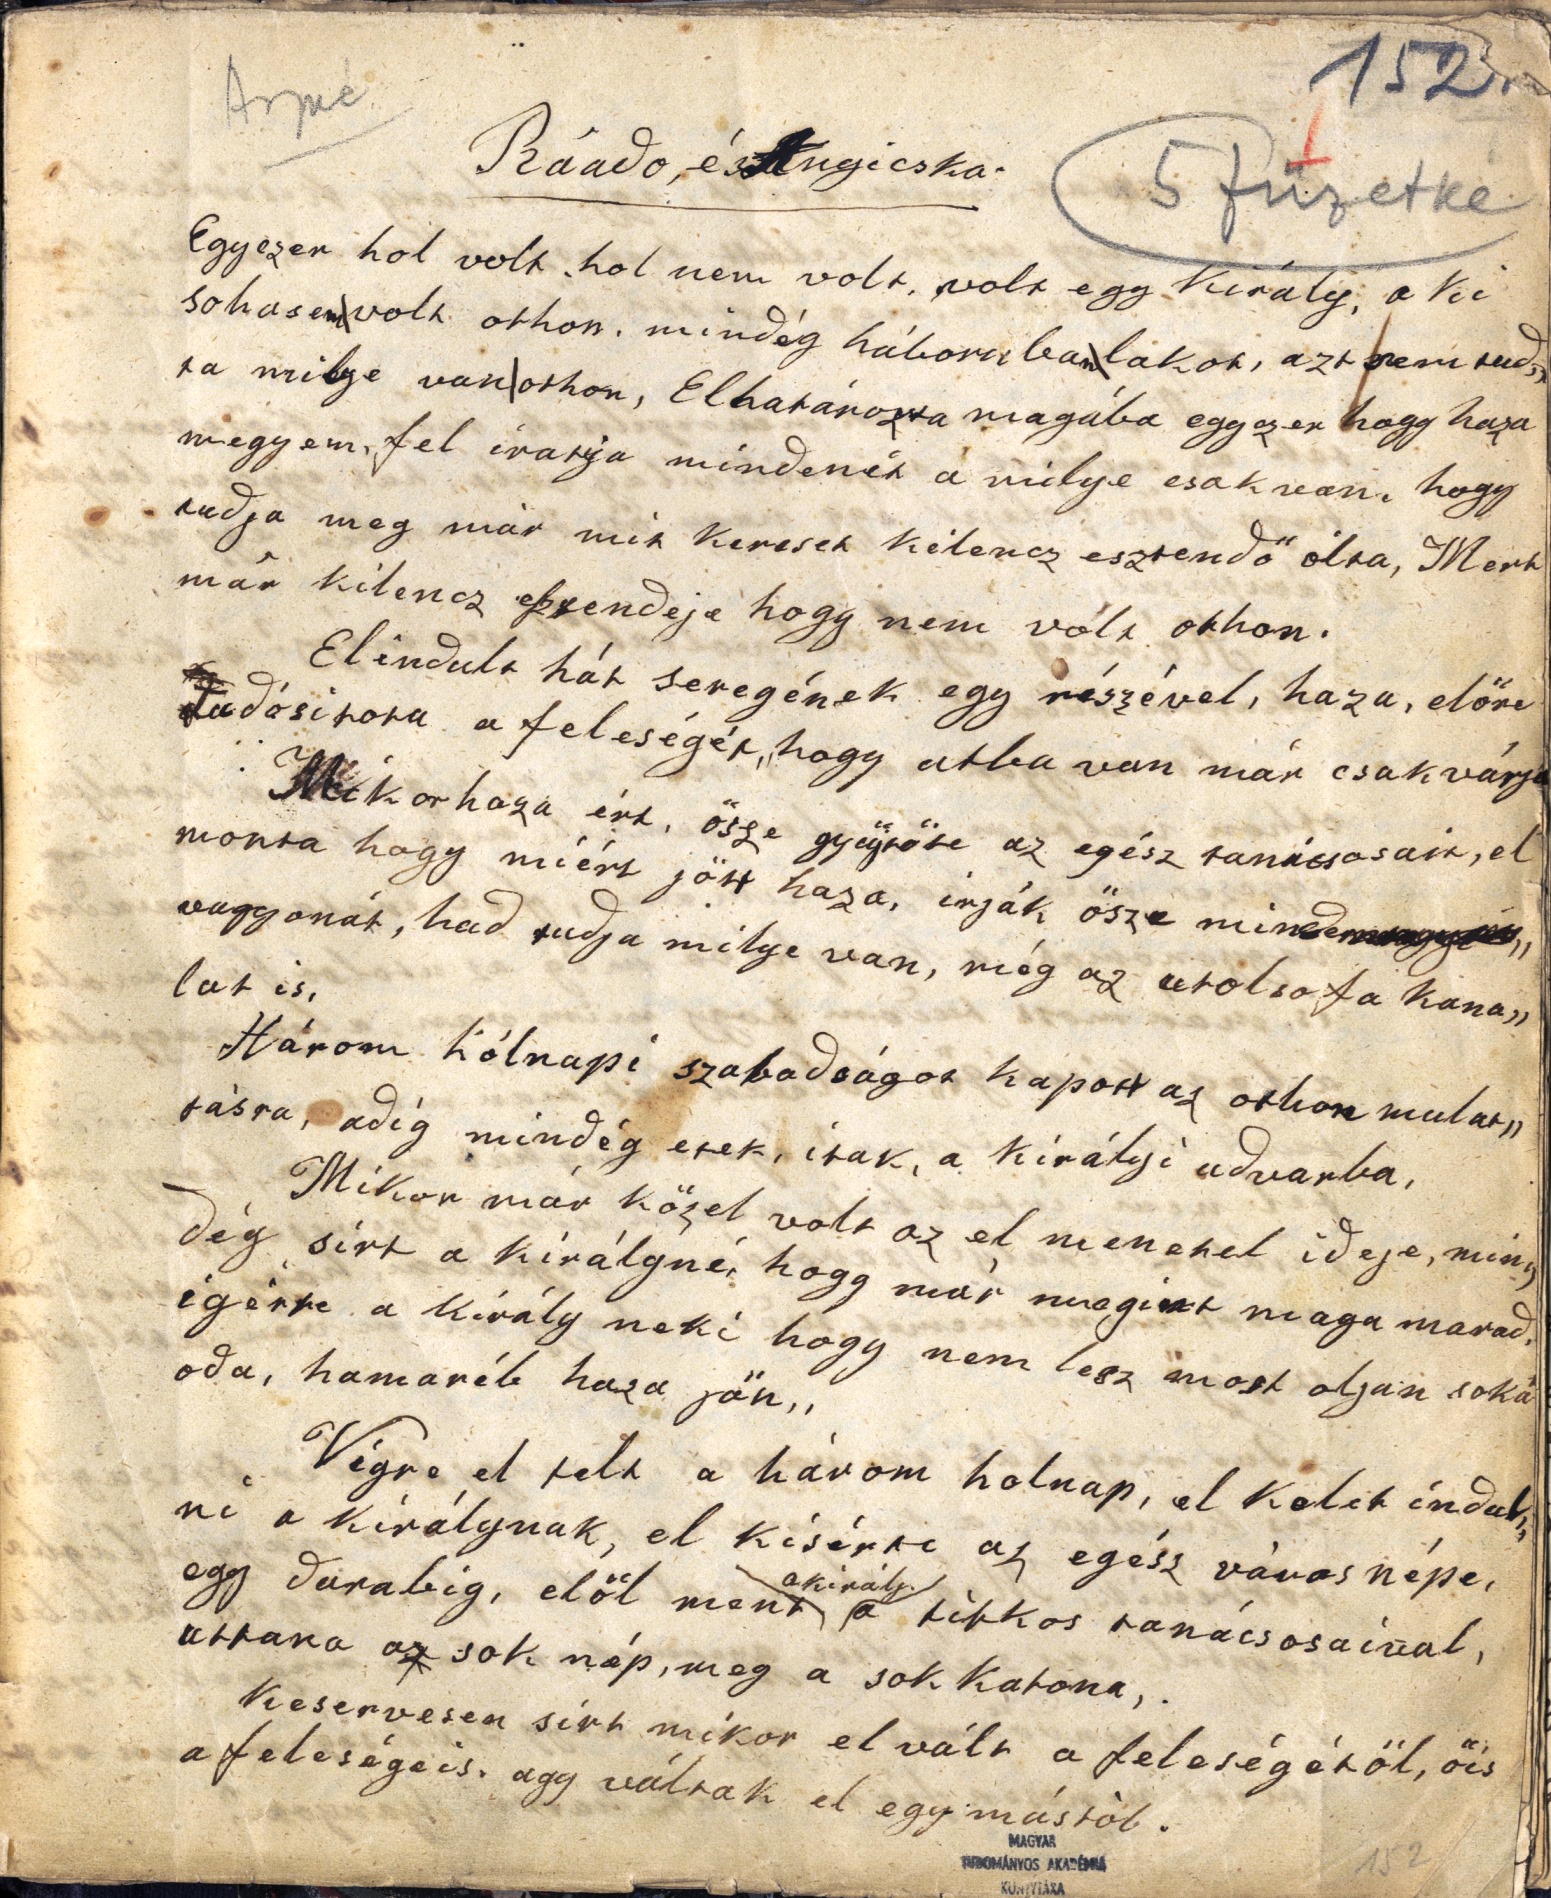 152.
Ráado, és Angicska.
5 füzetké
Egyezer hol volt hol nem volt, volt egy Király, a ki
sohasem volt othon. mindég háboruban lakot, azt nem tud„
ta milye van othon, Elhatározta magába egyszer hogy haza
megyem, fel iratja mindenét a milye csak van. hogy
tudja meg már mit kereset kilencz esztendő ólta, Mert
már kilencz esztendeje hogy nem vólt othon.
Elindult hát seregének egy részével, haza, előre
tudósitota a feleségét, hogy utba van már csak várja
Mikor haza ért, ösze gyüjtöte az egész tanácsosait, el
monta hogy miért jött haza, irják ösze minden
vagyonát, had tudja milye van, még az utolso fa kana„
lat is,
Három hólnapi szabadságot kapott az othon mulat„
tásra, adig mindég etek, itak, a királyi udvarba,
Mikor már közel volt az el menetel ideje, min„
dég sirt a királyné, hogy már megint maga marad,
igérte a király neki hogy nem lesz most oljan soká
oda, hamaréb haza jön,,
Végre el telt a három holnap, el kelet indul„
ni a királynak, el kisérte az egész város népe,
egy darabig, elöl ment a király a titkos tanácsosaival,
uttana az sok nép, meg a sok katona,.
Keservesen sirt mikor el vált a feleségétöl, öis
a feleségeis. ugy váltak el egymástól.
MAGYAR
TUDOMÁNYOS AKADÉMIA
KÖNYVTÁRA
152